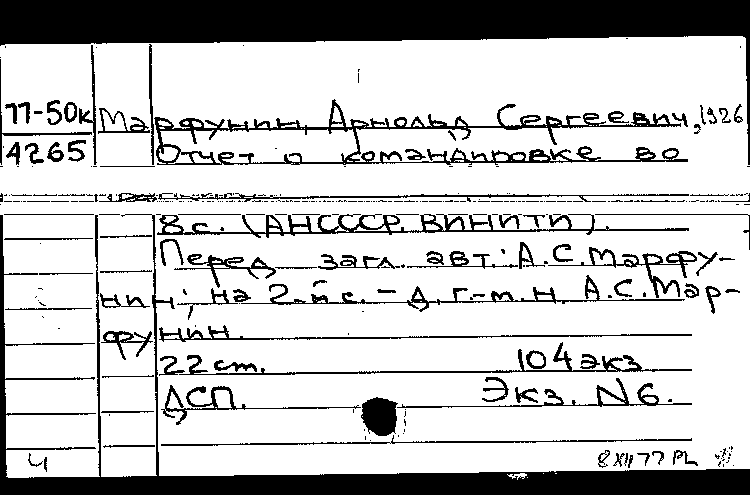 77-50к Марфунин, Арнольд Сергеевич, 1926
4265 Отчет о командировке во
8 с. (АН СССР. ВИНИТИ).
Перед загл. авт.: А.С. Марфу-
нин; на 2-й с. – д. г.-м. н. А.С. Мар-
фунин.
22 см. 104 экз
ДСП. Экз. N6.
4 8 XII 77 РL